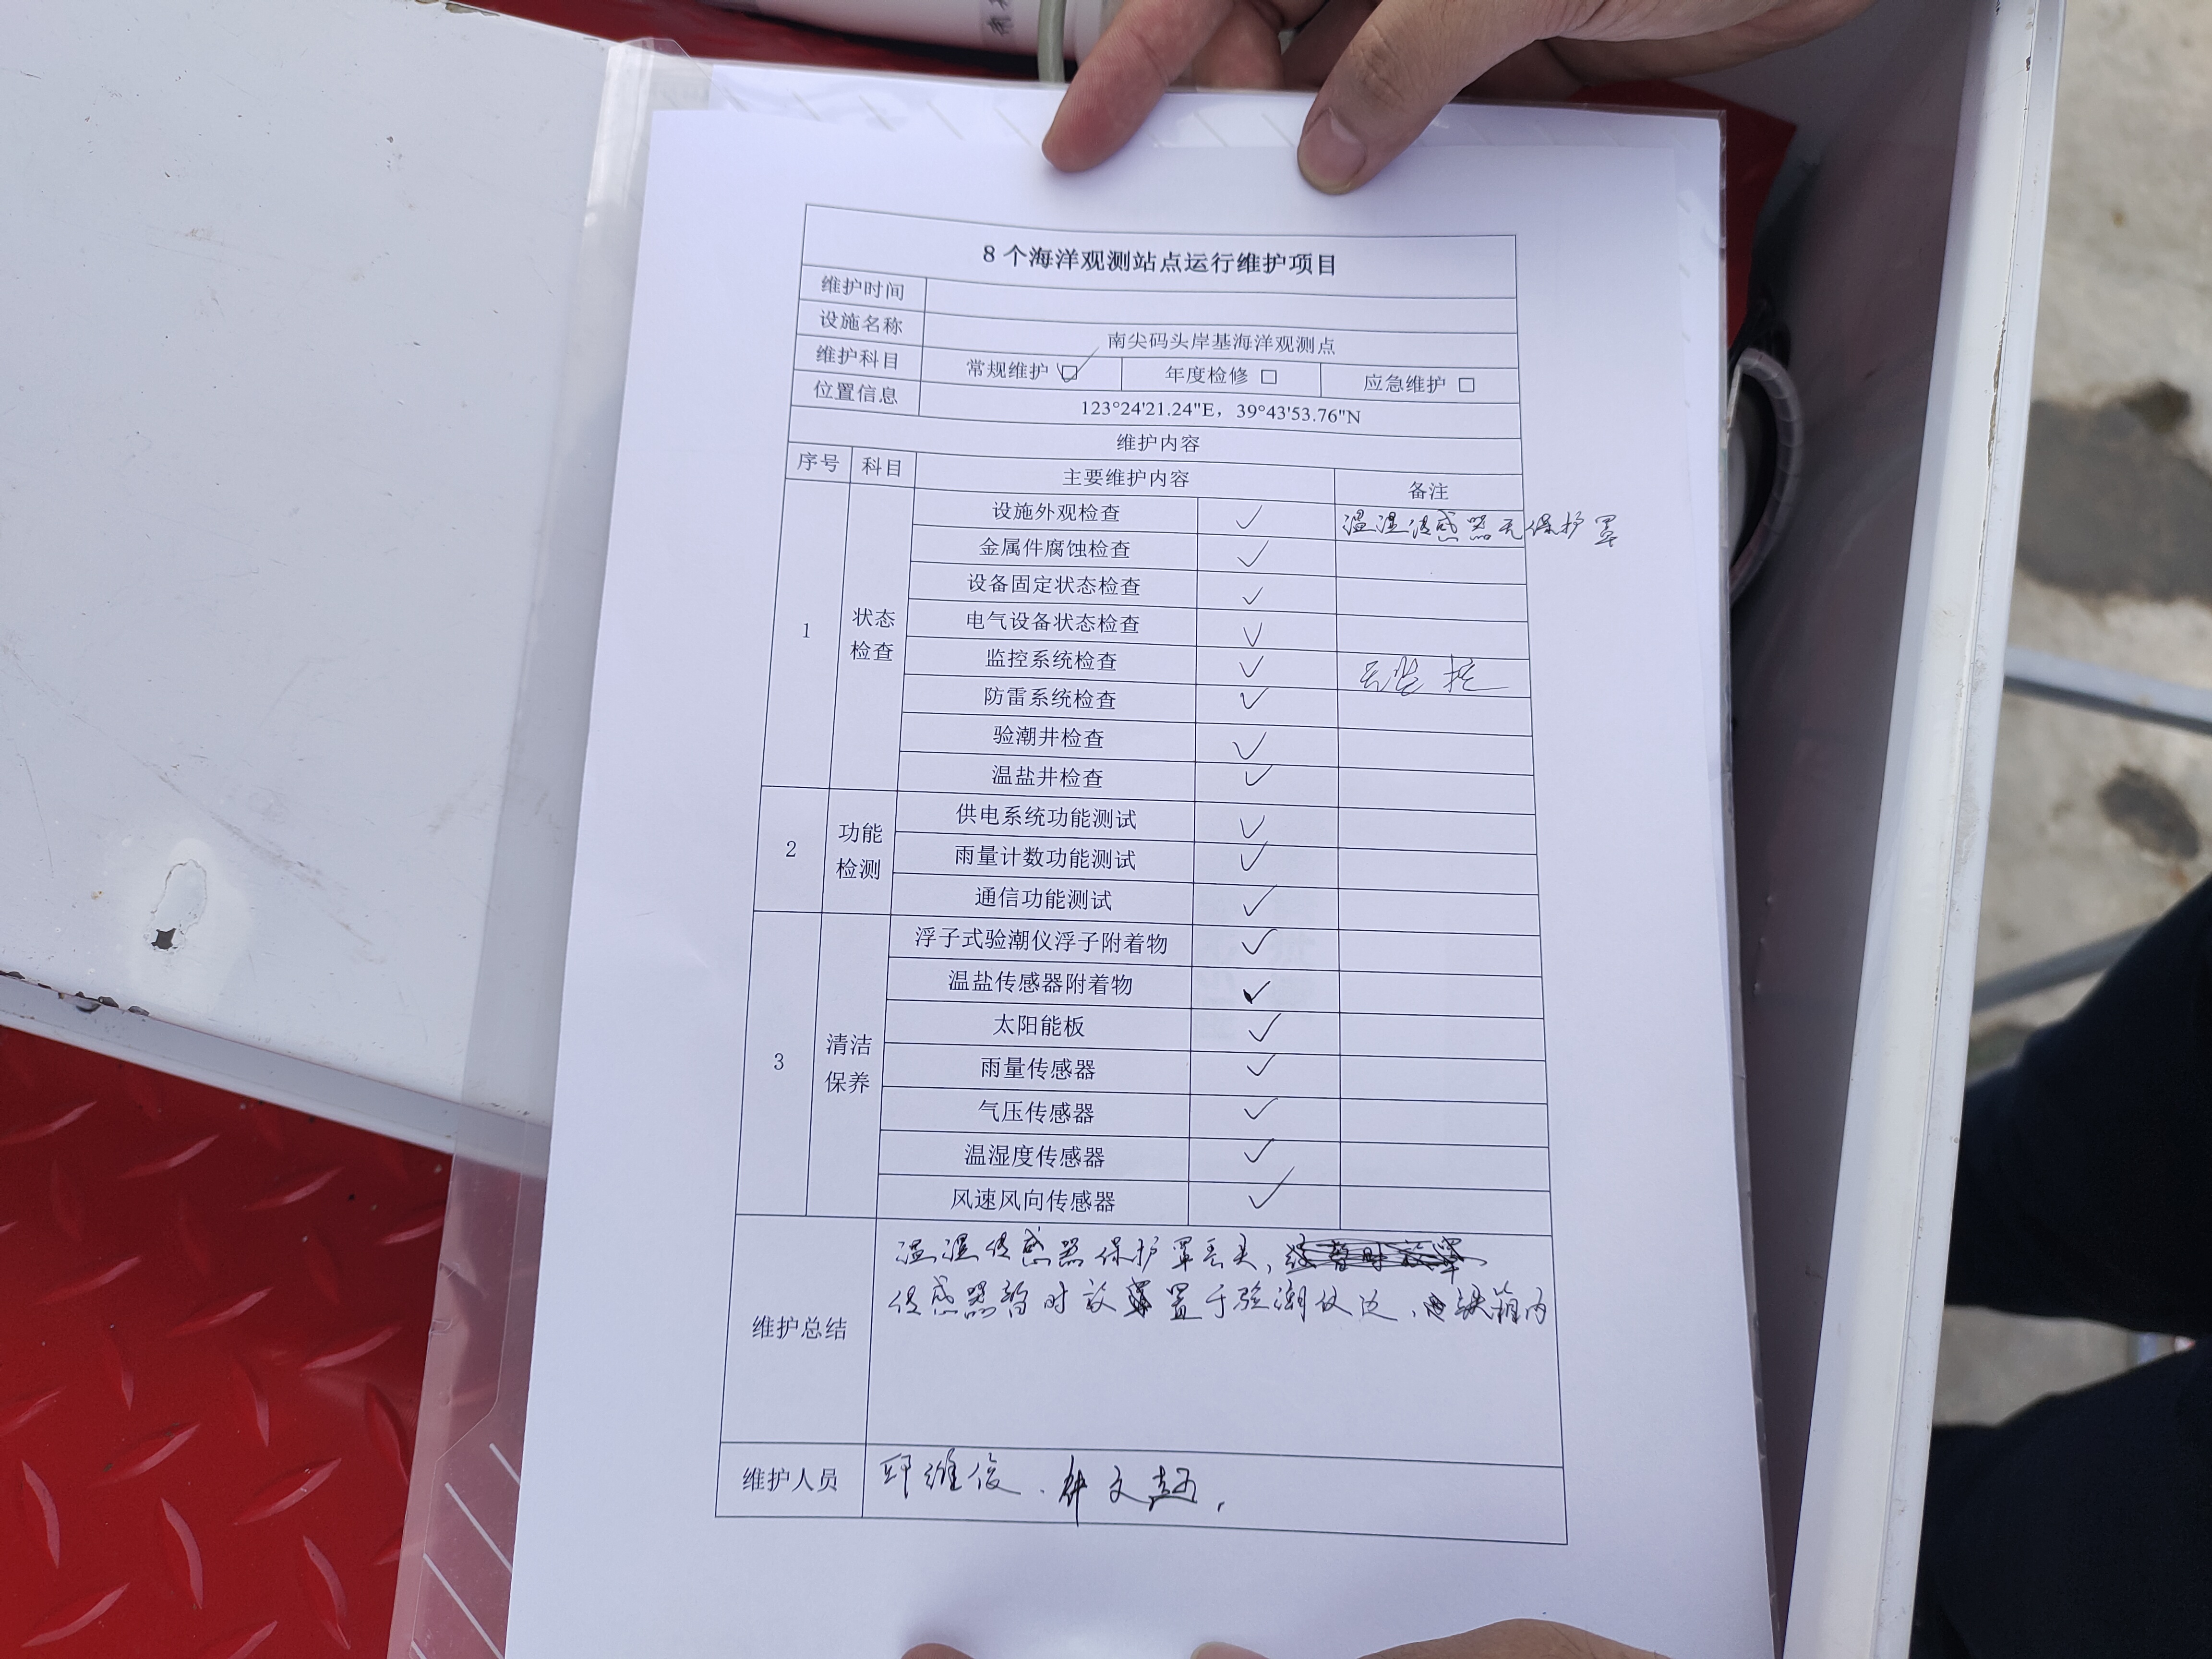 8 个海洋观测站点运行维护项目
维护时间
设施名称 南尖码头岸基海洋观测点
维护科目 常规维护 ☑ 年度检修 □ 应急维护 □
位置信息 123°24'21.24"E，39°43'53.76"N
维护内容
序号 科目 主要维护内容 备注
1 状态检查 设施外观检查 ✓ 温湿传感器无保护罩
金属件腐蚀检查 ✓
设备固定状态检查 ✓
电气设备状态检查 ✓
监控系统检查 ✓ 无监控
防雷系统检查 ✓
验潮井检查 ✓
温盐井检查 ✓
2 功能检测 供电系统功能测试 ✓
雨量计数功能测试 ✓
通信功能测试 ✓
3 清洁保养 浮子式验潮仪浮子附着物 ✓
温盐传感器附着物 ✓
太阳能板 ✓
雨量传感器 ✓
气压传感器 ✓
温湿度传感器 ✓
风速风向传感器 ✓
维护总结 温湿传感器保护罩丢失，
传感器暂时放置于验潮仪 箱内
维护人员 维俊、文超，